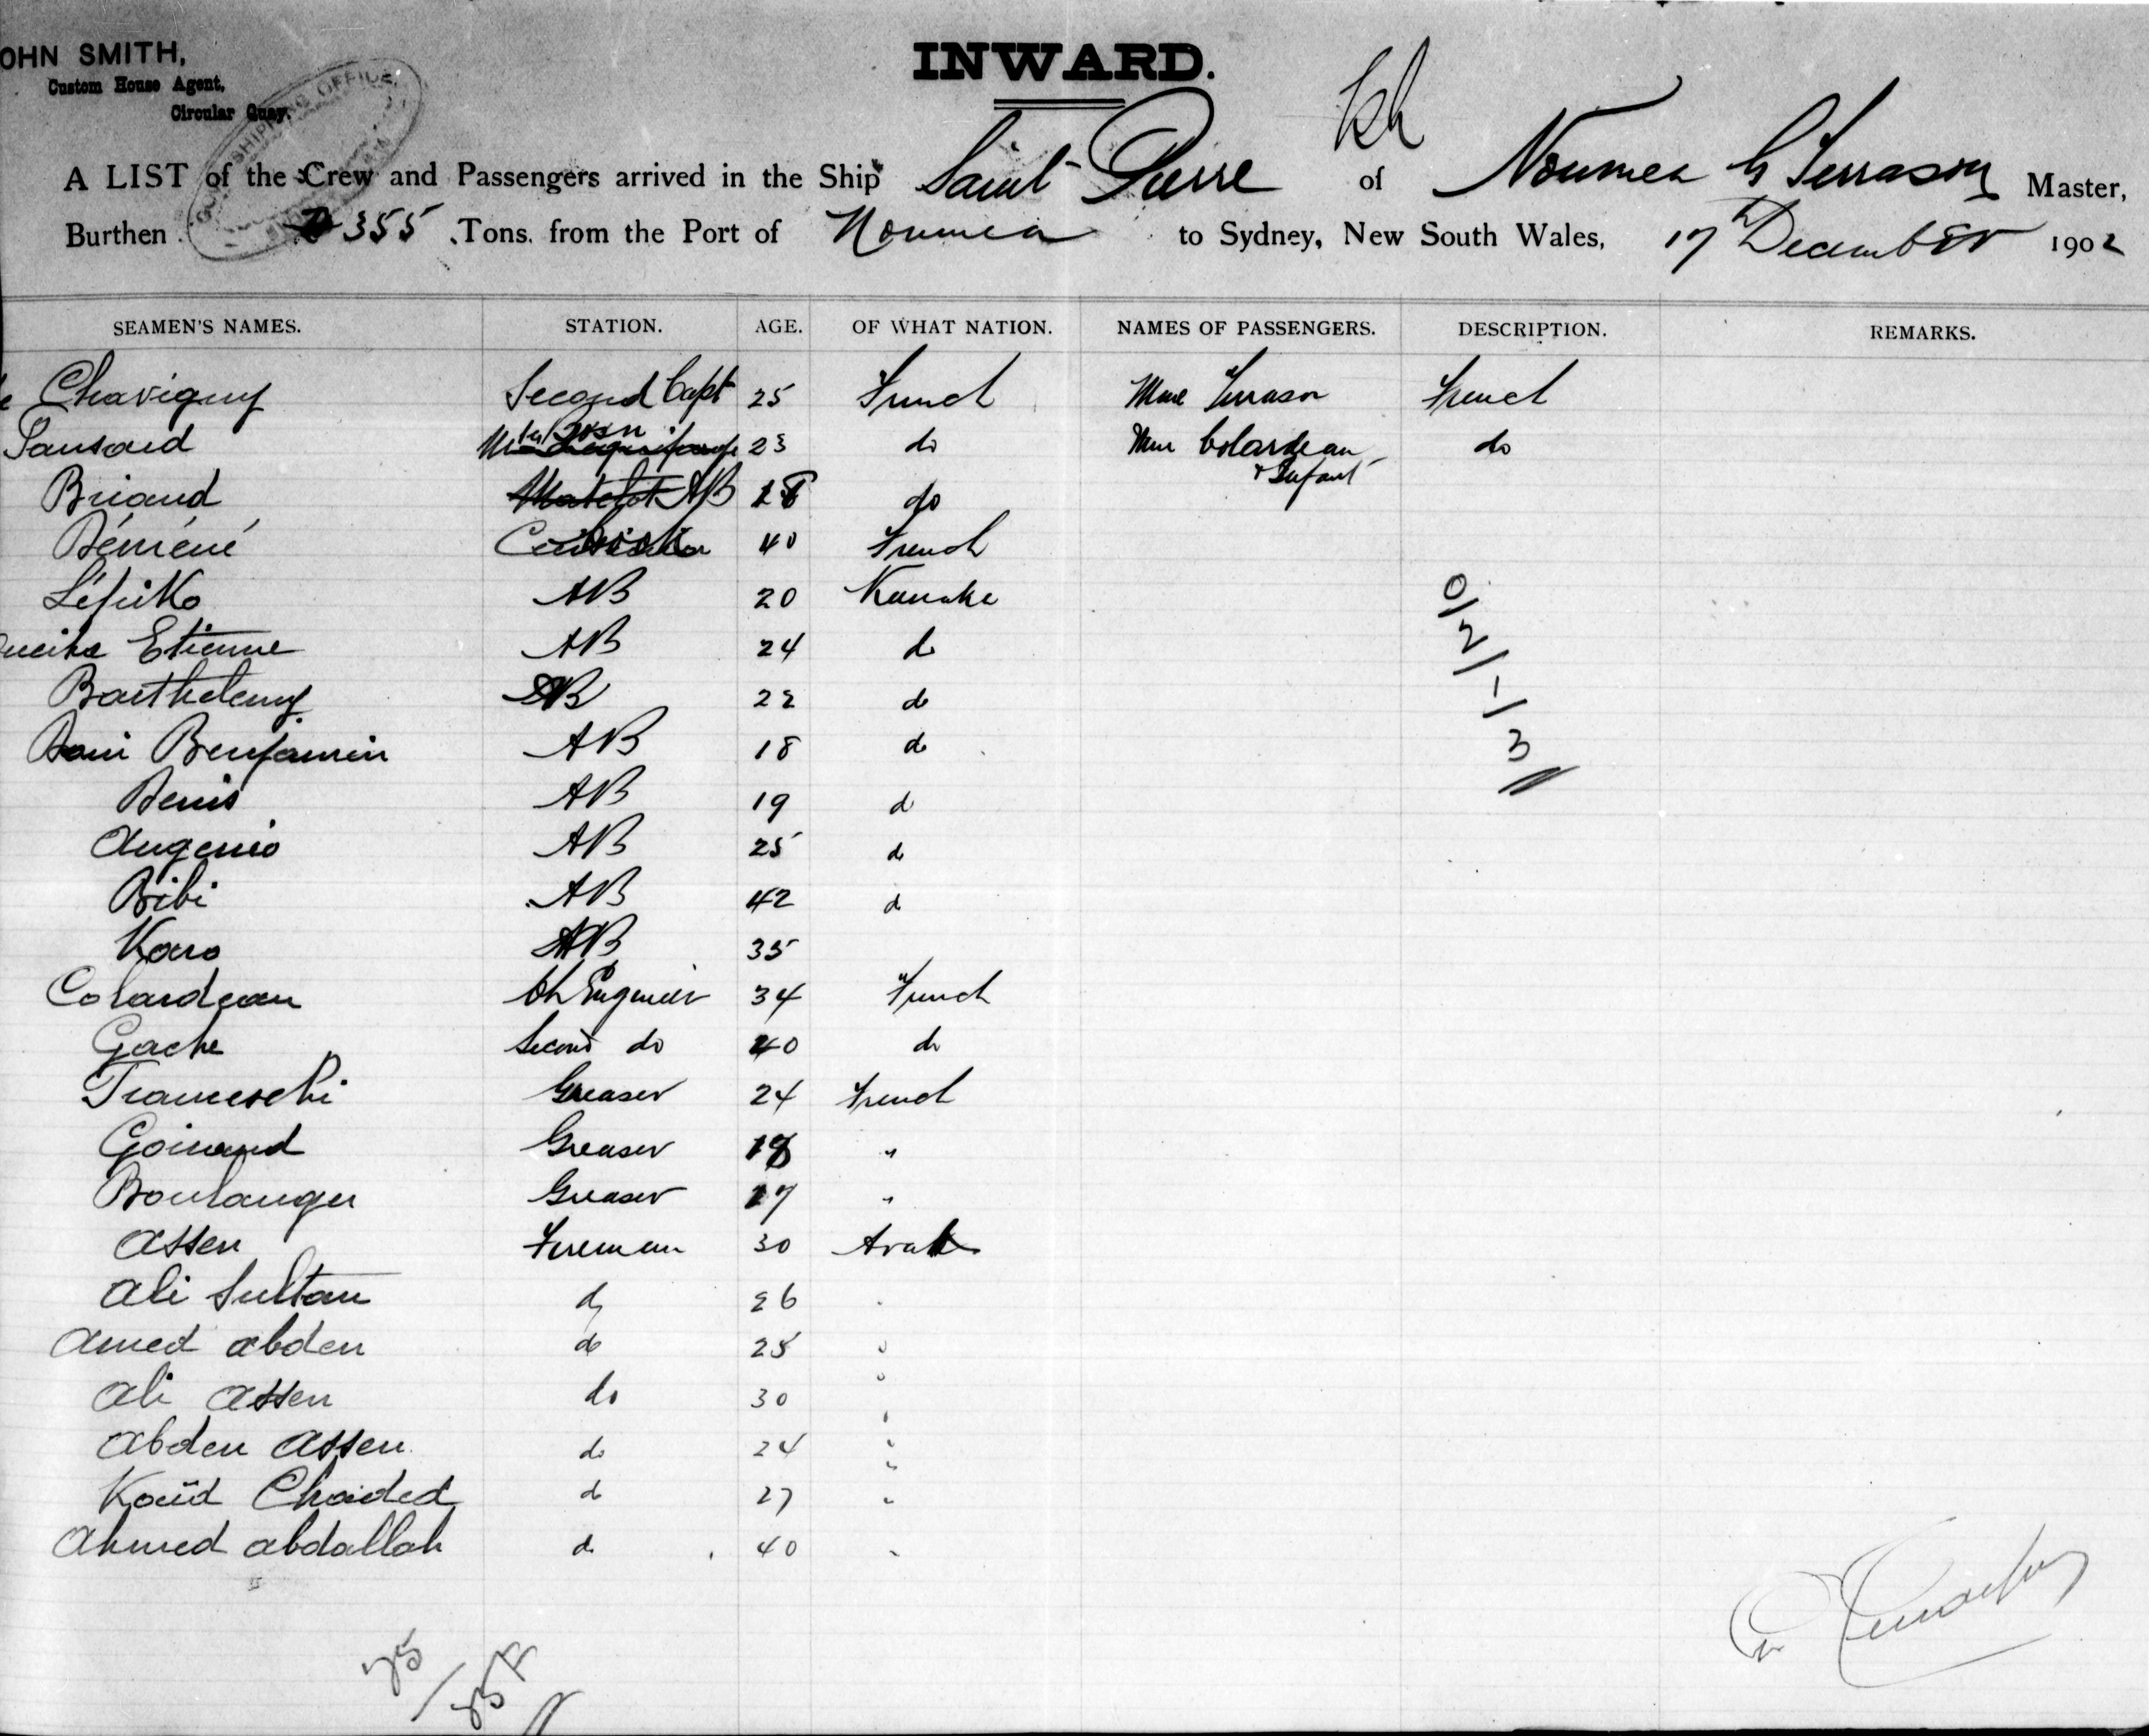 OHN SMITH,
Custom House Agent,
Circular Quay.
SHIPPING OFFICE
INWARD.
A LIST of the Crew and Passengers arrived in the Ship Saint Pierre of Noumea G Terrason Master,
Burthen 355 Tons from the Port of Noumea to Sydney, New South Wales, 17th December 1902
SEAMEN'S NAMES. STATION. AGE. OF WHAT NATION. NAMES OF PASSENGERS. DESCRIPTION. REMARKS.
Chavigny Second Capt 25 French Mme Terrason French
Pansard Bosn 23 do Mme Colardeau do
& Infant
Briand Matelot AB 18 do
Béméné Cook 40 French
AB 20 Kanaka
Etienne AB 24 do
Barthelemy AB 22 do
Benjamin AB 18 do
Denis AB 19 do
Augenio AB 25 do
Bibi AB 42 do
Karo AB 35
Colardeau Ch Engineer 34 French
Gache Second do 40 do
Franceschi Greaser 24 French
Goinard Greaser 18 "
Boulanger Greaser 27 "
Assen Fireman 30 Arab
Ali Sultan do 26
Amed abden do 25 "
Ali Assen do 30 "
Abden Assen do 24 "
Kaïd Chaided do 27 "
Ahmed abdallah do 40 "
0/
2/
-/
3